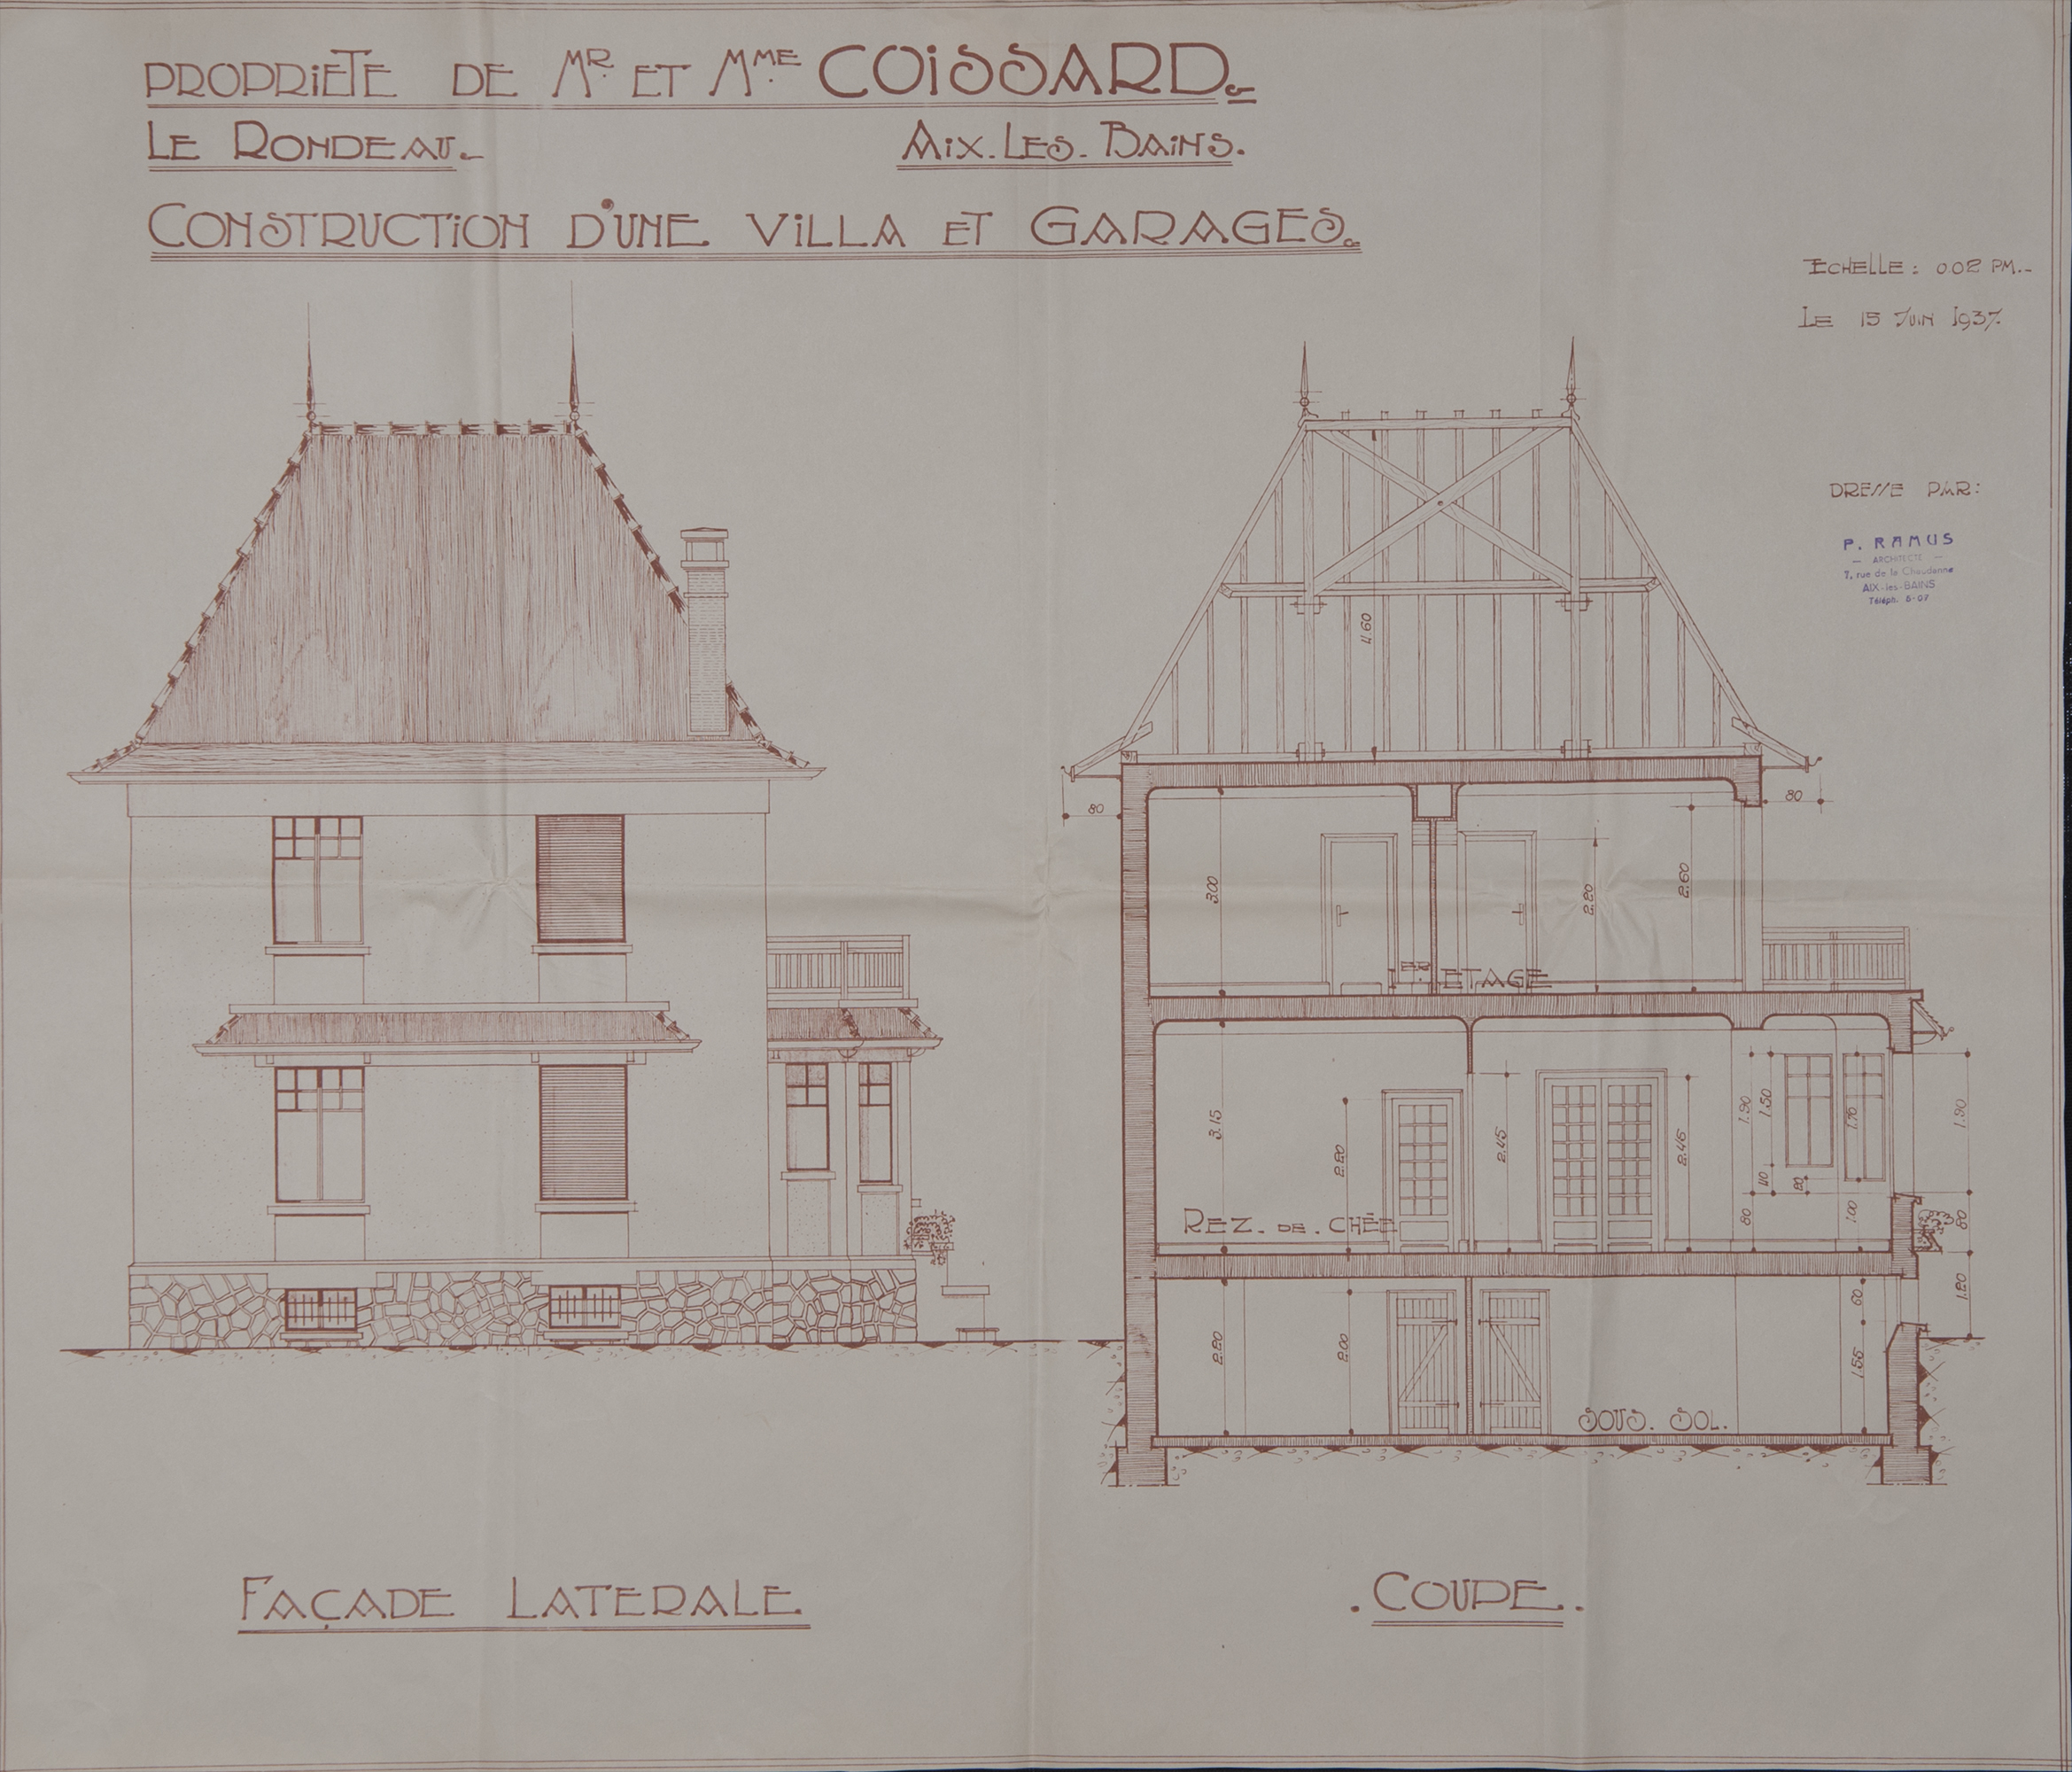 PROPRIETE DE MR. ET MME. COISSARD.
LE RONDEAU. AIX.LES.BAINS.
CONSTRUCTION D'UNE VILLA ET GARAGES.
ECHELLE: 0.02 PM.
LE 15 JUIN 1937.
DRESSE PAR:
P. RAMUS
— ARCHITECTE —
7, rue de la Chaudanne
AIX-les-BAINS
Téléph. 5-07
4.60
80
80
3.00
2.20
2.60
1ER ETAGE
3.15
2.20
2.45
2.45
1.90
1.50
1.70
1.90
40
20
80
1.00
80
REZ. DE. CHÉE
1.20
60
2.20
2.00
1.55
SOUS. SOL.
FAÇADE LATERALE
. COUPE .